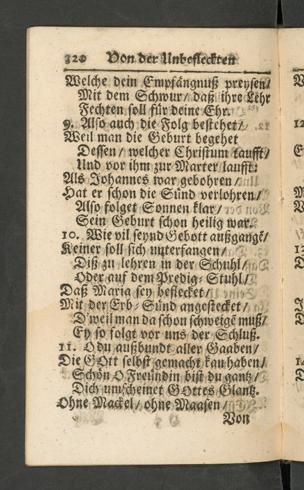 320 Von der Unbefleckten
Welche dein Empfängnuß preysen/
Mit dem Schwur/ daß ihre Lehr
Fechten soll für deine Ehr.
9. Also auch die Folg bestehet/
Weil man die Geburt begehet
Dessen/ welcher Christum taufft/
Und vor ihm zur Marter laufft:
Als Johannes war gebohren/
Hat er schon die Sünd verlohren/
Also folget Sonnen klar/
Sein Geburt schon heilig war.
10. Wie vil seynd Gebott außgangẽ/
Keiner soll sich unterfangen/
Diß zu lehren in der Schuhl/
Oder auf dem Predig-Stuhl/
Daß Maria sey beflecket/
Mit der Erb-Sünd angestecket/
D'weil man da schon schweigẽ muß/
Ey so folgt vor uns der Schluß.
11. O du außbundt aller Gaaben/
Die GOtt selbst gemacht kan haben/
Schön O Freundin bist du gantz/
Dich umscheinet GOttes Glantz.
Ohne Mackel/ ohne Maasen/
Von